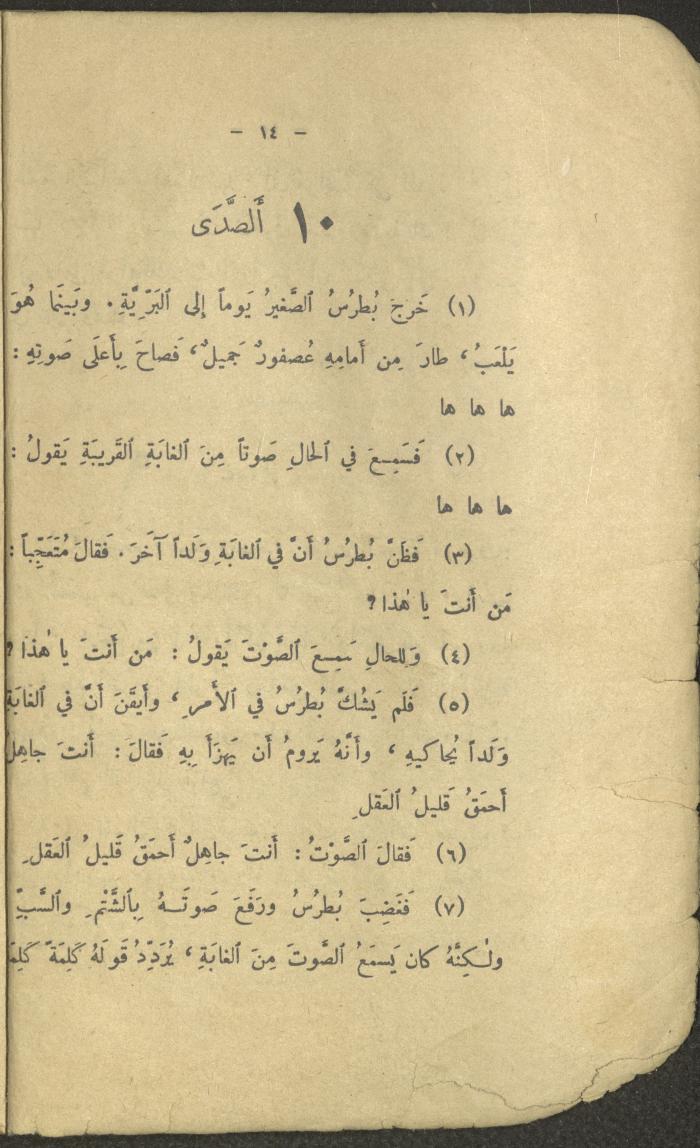 – ١٤ –
١٠ أَلصَّدَى
(١) خَرجَ بُطرُسُ ٱلصَّغيرُ يَوماً إِلى ٱلبَرِّيَّةِ. وبَينَمَا هُوَ
يَلْعَبُ، طارَ مِن أَمامِهِ عُصفورٌ جَميلٌ، فَصاحَ بِأَعلَى صَوتِهِ :
ها ها ها
(٢) فَسَمِعَ في ٱلحالِ صَوتاً مِنَ ٱلغابَةِ ٱلقَريبَةِ يَقولُ :
ها ها ها
(٣) فَظَنَّ بُطرُسُ أَنَّ في ٱلغابَةِ وَلَداً آخَرَ. فَقالَ مُتَعَجِّباً :
مَن أَنتَ يا هٰذا ?
(٤) وَلِلحالِ سَمِعَ ٱلصَّوْتَ يَقولُ : مَن أَنتَ يا هٰذا ?
(٥) فَلَم يَشُكَّ بُطرُسُ في ٱلأَمرِ، وأَيقَنَ أَنَّ في ٱلغابَةِ
وَلَداً يُحاكيهِ، وأَنَّهُ يَرومُ أَن يَهزَأَ بِهِ فَقالَ : أَنتَ جاهِلٌ
أَحمَقُ قَليلُ ٱلعَقلِ
(٦) فَقالَ ٱلصَّوْتُ : أَنتَ جاهِلٌ أَحمَقُ قَليلُ ٱلعَقلِ
(٧) فَغَضِبَ بُطرُسُ ورَفَعَ صَوتَـهُ بِٱلشَّتْمِ وٱلسَّبِّ
ولٰكِنَّهُ كان يَسمَعُ ٱلصَّوتَ مِنَ ٱلغابَةِ، يُرَدِّدُ قَولَهُ كَلِمَةً